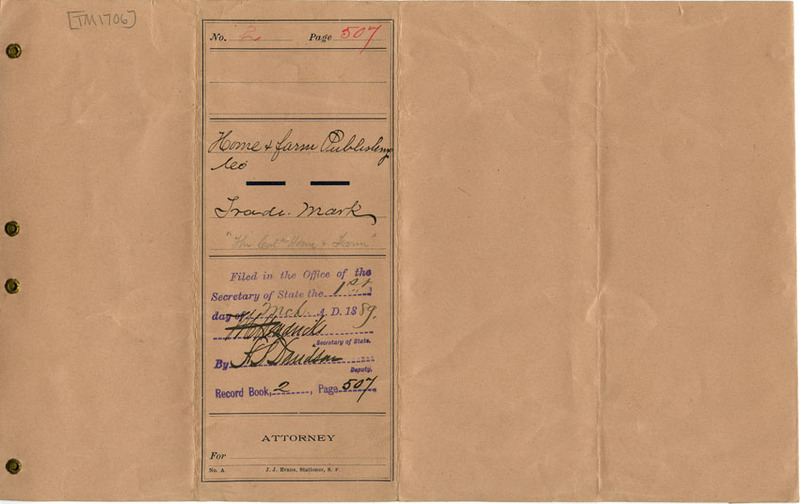 [TM1706]
No. 2 Page 507
Home & farm Publishing
Co
Trade. Mark
"The Cala Home & Farm"
Filed in the Office of the
Secretary of State the 1st
day of Mch A. D. 1889.
W C Hendricks
Secretary of State.
By
Deputy.
Record Book, 2, Page 507
ATTORNEY
For
No. A J. J. Evans, Stationer, S. F.